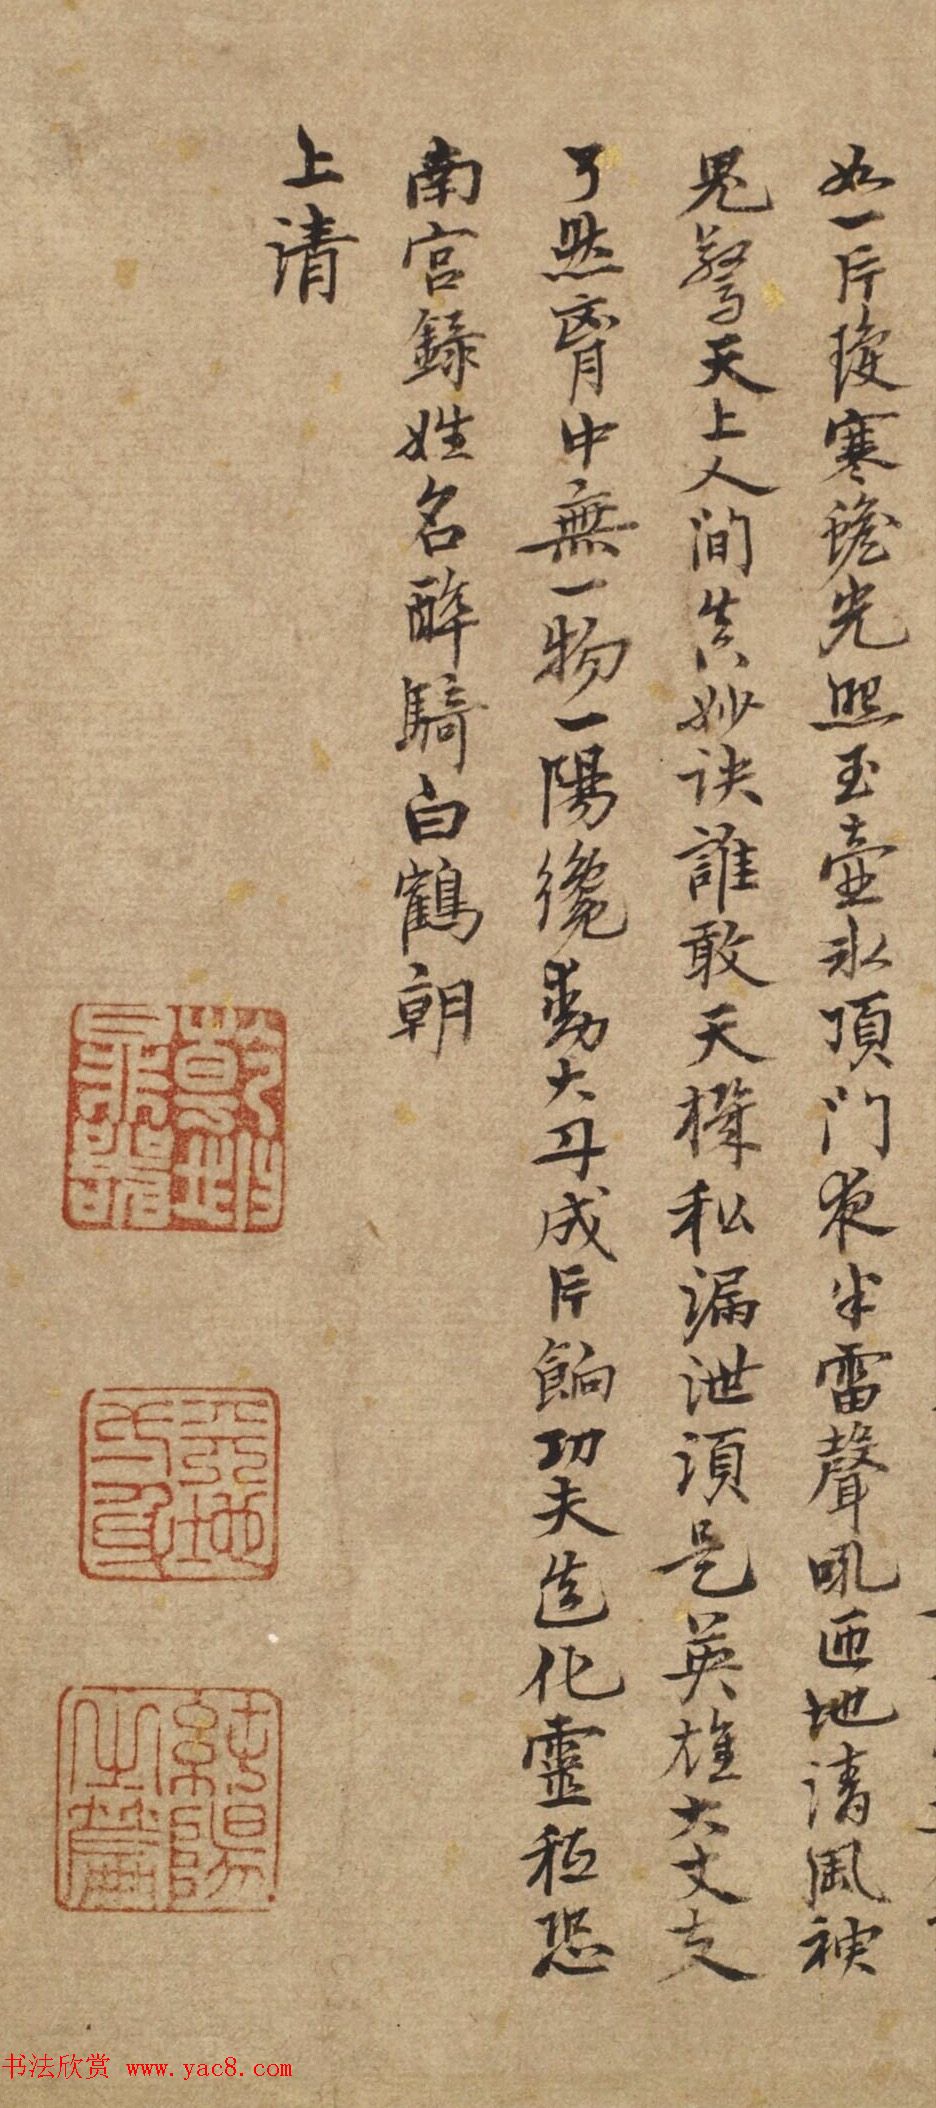 如一片瓊寒蟾光照玉壺氷頂門夜半雷聲吼匝地清風神
鬼驚天上人間真妙訣誰敢天機私漏泄須是英雄大丈夫
了然胷中無一物一陽纔動大丹成片餉功夫造化靈秪恐
南宮錄姓名醉騎白鶴朝
上清
平地
純陽
书法欣赏 www.yac8.com